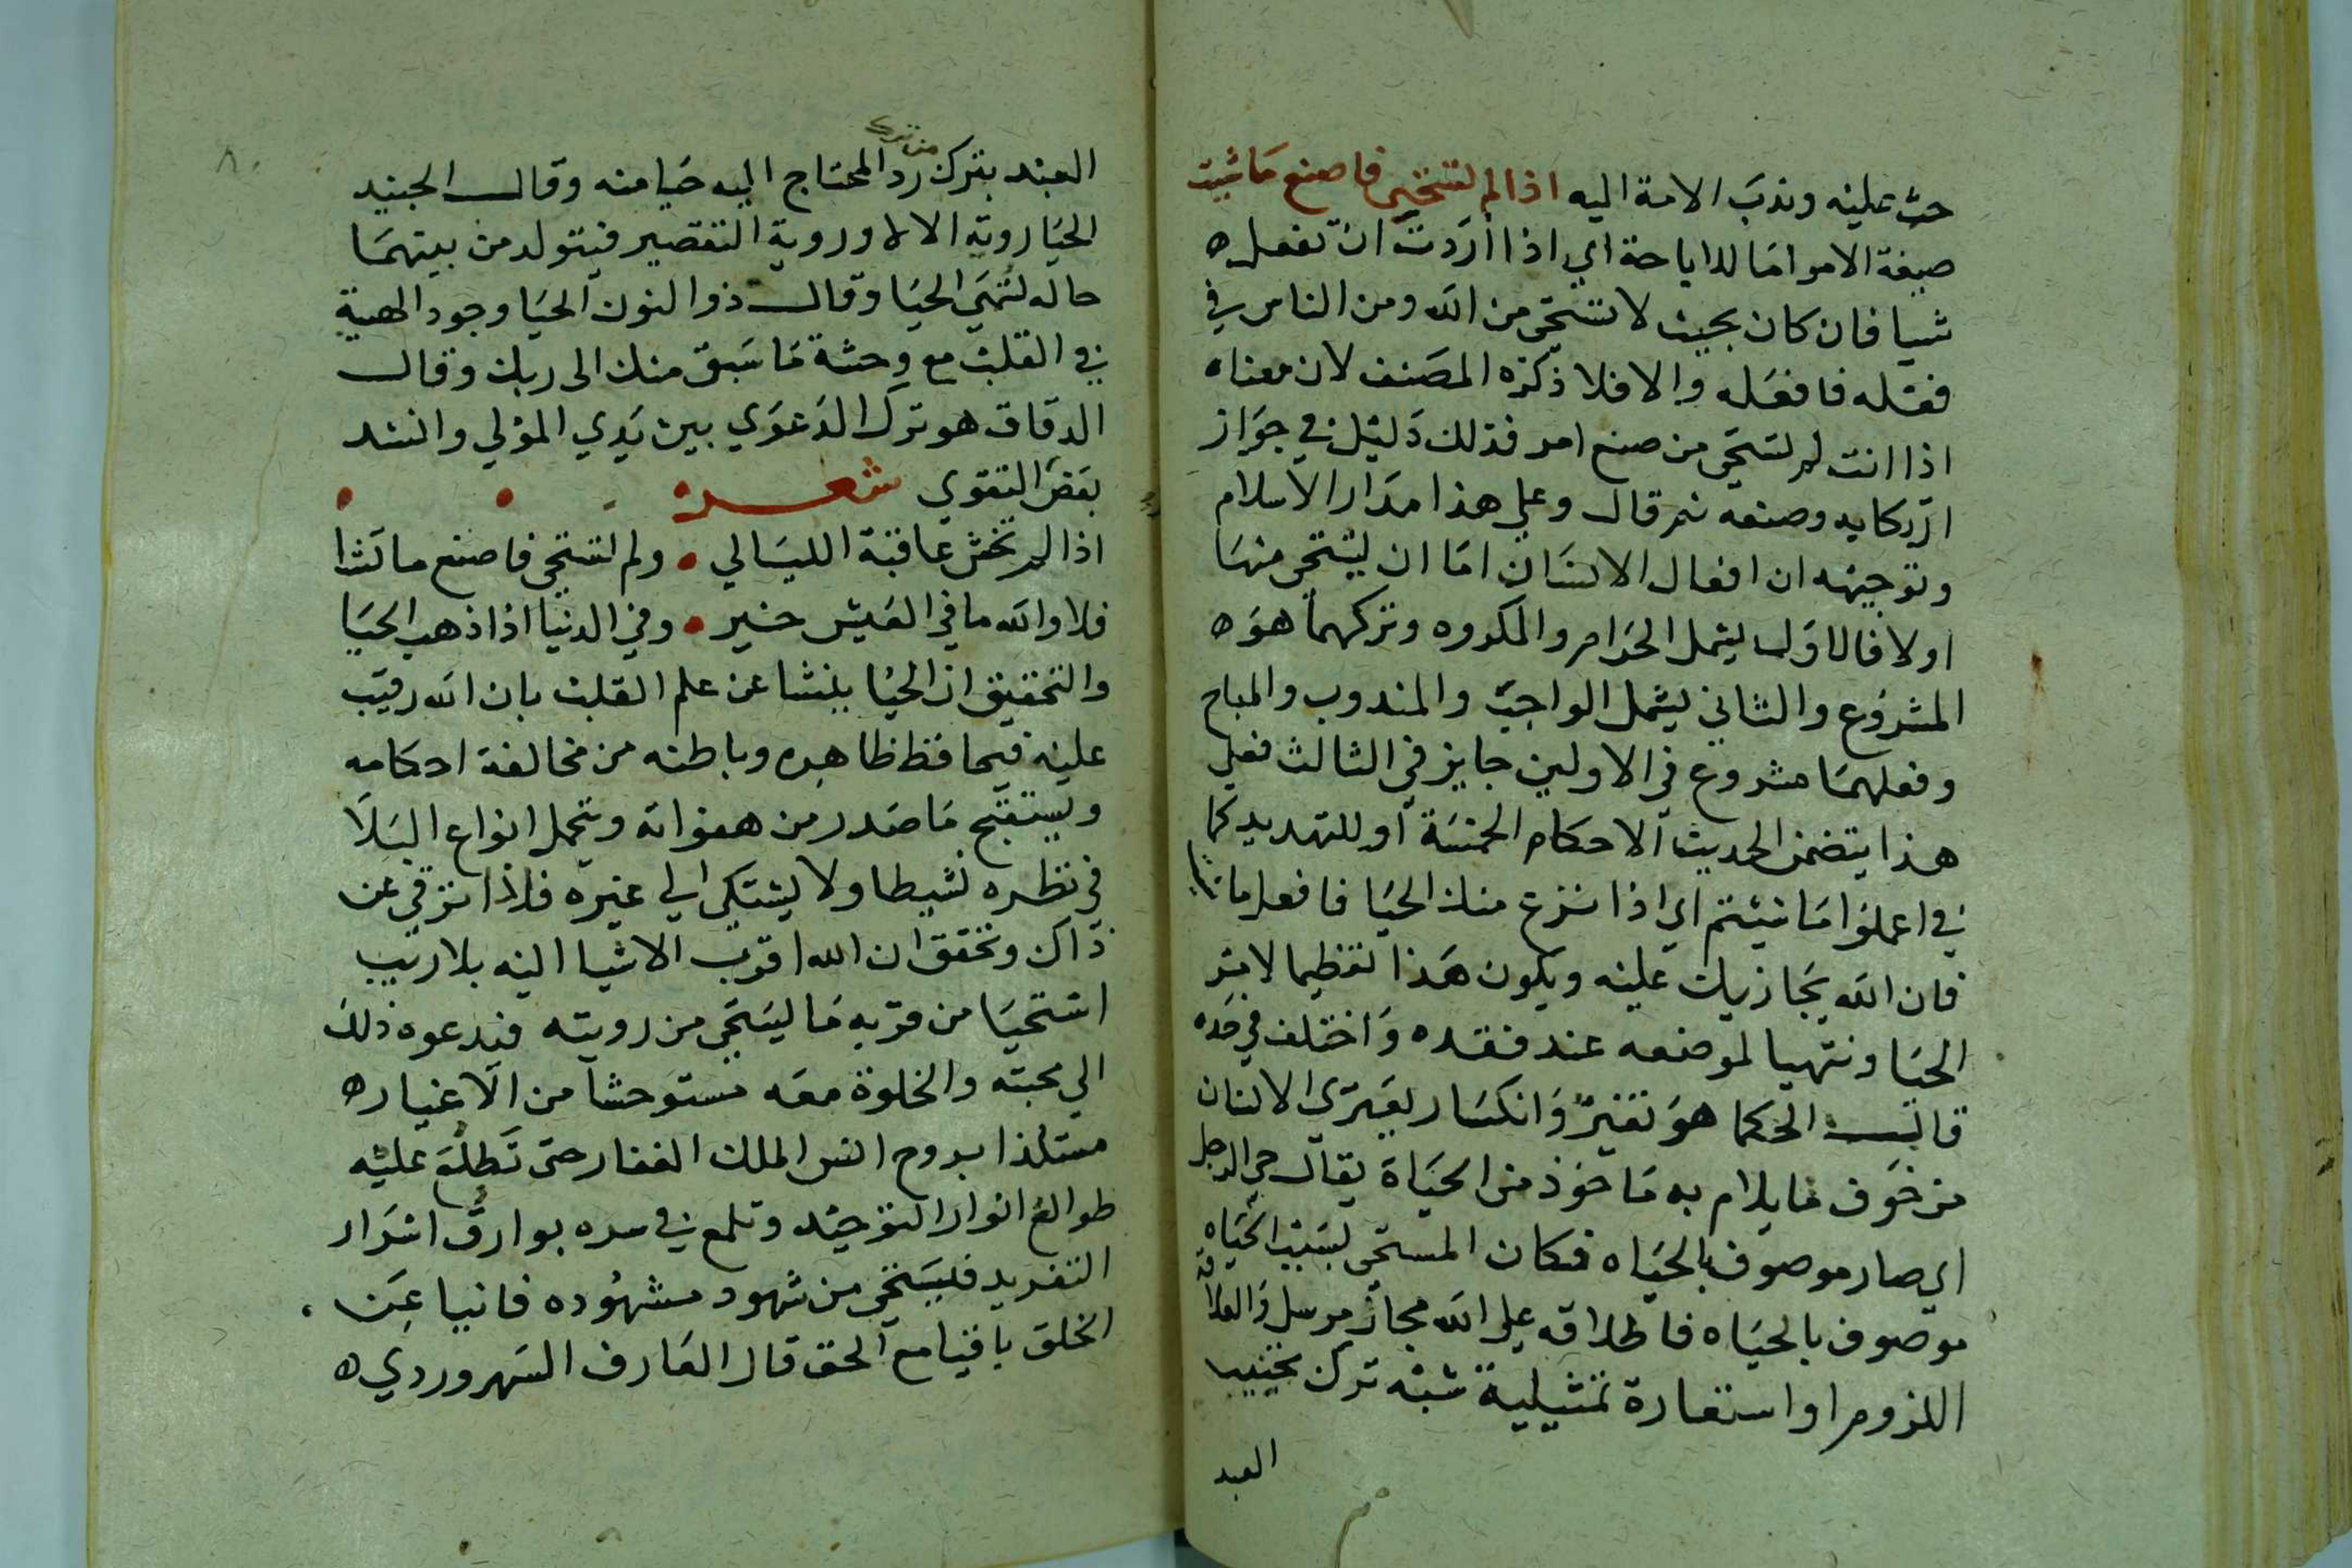 حث عليه وندب الامة اليه اذا لم تستحي فاصنع ما شيت
صيغة الامر اما للاباحة اي اذا أردت ان تفعل ه
شيا فان كان بحيث لا تستحي من الله ومن الناس في
فعله فافعله والا فلا ذكره المصنف لان معناه
اذا انت لم تستحي من صنع امر فذلك دليل في جواز
ارتكابه وصنعه ثم قال وعلي هذا مدار الاسلام
وتوجيهه ان افعال الانسان اما ان يستحي منها
اولا فالاول يشمل الحرام والمكروه وتركهما هو ه
المشروع والثاني يشمل الواجب والمندوب والمباح
وفعلهما مشروع في الاولين جايز في الثالث فعلي
هذا يتضمن الحديث الاحكام الخمسة أو للتهديد كما
في اعملوا ما شيتم اي اذا نزع منك الحيا فافعل ما
فان الله يجازيك عليه ويكون هذا تعظيما لامر
الحيا وتنبيها لموضعه عند فقده واختلف في حده
قالت الحكما هو تغير وانكسار يعتري الانسان
من خوف ما يلام به ماخوذ من الحياة يقال حي الرجل
اي صار موصوف بالحياه فكان المستحي بسبب الحياه
موصوف بالحياه فاطلاقه علي الله مجاز مرسل والعلاقة
اللزوم او استعارة تمثيلية شبه ترك تخييب
العبد
٨٠
العبد بترك رد المحتاج اليه حيا منه وقال الجنيد
من ترك
الحيا روية الالا وروية التقصير فيتولد من بينهما
حاله تسمي الحيا وقال ذوا النون الحيا وجود الهيبة
في القلب مع وحشة ما سبق منك الى ربك وقال
الدقاق هو ترك الدعوي بين يدي المولي وانشد
بعض التقوي شعر
اذا لم تخش عاقبة الليالي ولم تستحي فاصنع ما تشا
فلا والله ما في العيش خير وفي الدنيا اذا ذهب الحيا
والتحقيق ان الحيا ينشا عن علم القلب بان الله رقيب
عليه فيحافظ ظاهره وباطنه من مخالفة احكامه
ويستقبح ما صدر من هفواته ويتحمل انواع البلا
في نظره نشيطا ولا يشتكي الي غيره فاذا ترقي عن
ذاك وتحقق ان الله اقرب الاشيا اليه بلا ريب
استحيا من قربه ما يستحي من رويته فيدعوه ذلك
الي محبته والخلوة معه مستوحشا من الاغيار ه
مستلذا بروح انس الملك الغفار حتى تطلع عليه
طوالع انوار التوحيد وتلمع في سره بوارق اسرار
التفريد فيستحي من شهود مشهوده فانيا عن
الخلق باقيا مع الحق قال العارف السهروردي ه